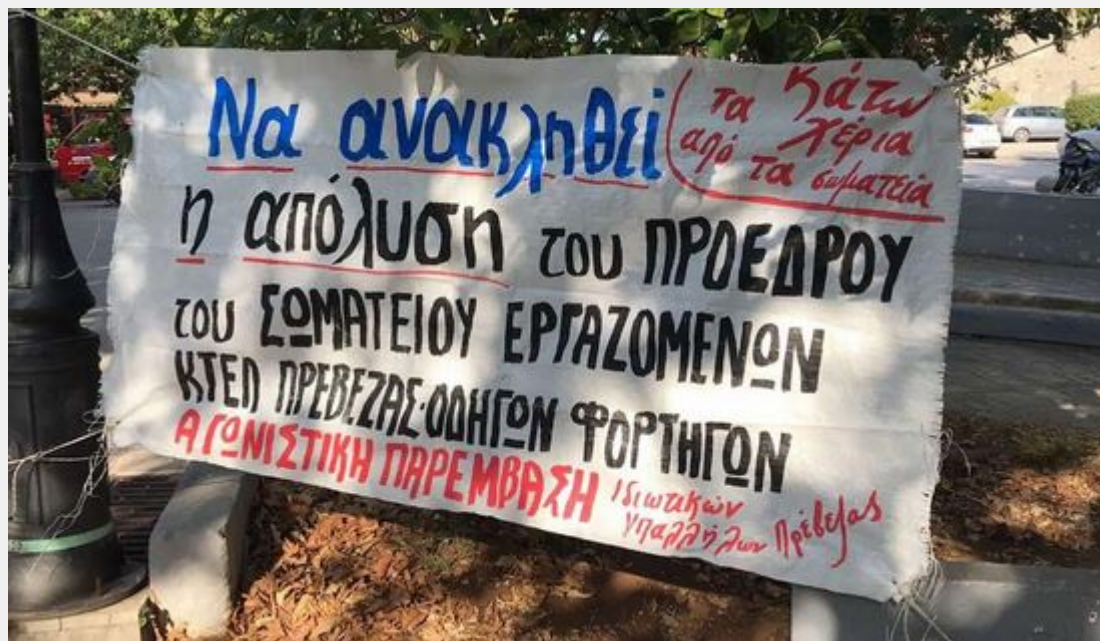 Να ανακληθεί
Κάτω
τα χέρια
από τα σωματεία
η απόλυση του ΠΡΟΕΔΡΟΥ
του ΣΩΜΑΤΕΙΟΥ ΕΡΓΑΖΟΜΕΝΩΝ
ΚΤΕΛ ΠΡΕΒΕΖΑΣ-ΟΔΗΓΩΝ ΦΟΡΤΗΓΩΝ
ΑΓΩΝΙΣΤΙΚΗ ΠΑΡΕΜΒΑΣΗ Ιδιωτικών
Υπαλλήλων Πρέβεζας